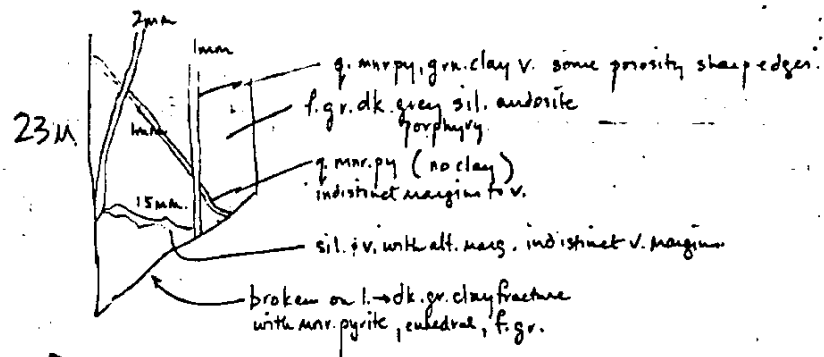 2mm
1mm
q. mnr py, grn. clay v. some porosity sharp edges.
f.gr. dk. grey sil. andosite
porphyry
23M
1mm
q. mnr. py (no clay)
indistinct margins to v.
15mm.
sil. & v. with alt. marg. indistinct v. margins
broken on l.→dk. gr. clay fracture
with mnr. pyrite, euhedral, f. gr.